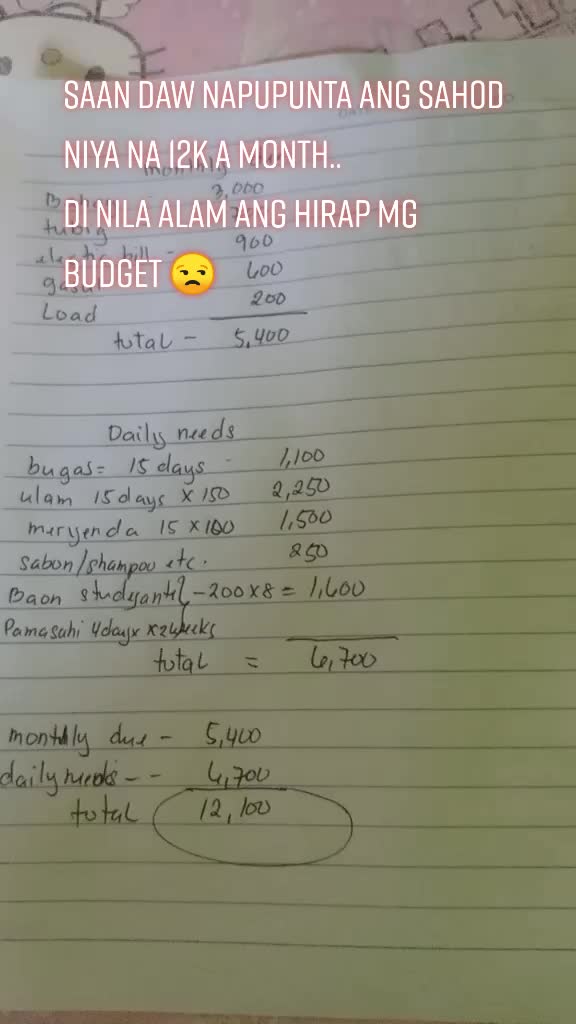 SAAN DAW NAPUPUNTA ANG SAHOD
NIYA NA 12K A MONTH..
DI NILA ALAM ANG HIRAP MG
BUDGET 😒
monthly
3,000
tubig
electric bill - 900
gasul 600
Load 200
total - 5,400
Daily needs
bugas= 15 days - 1,100
ulam 15 days x 150 2,250
meryenda 15 x 100 1,500
sabon/shampou etc. 250
Baon studyante - 200 x 8 = 1,600
Pamasahi 4 days x 2 weeks
total = 6,700
monthly due - 5,400
daily needs - - 6,700
total 12,100